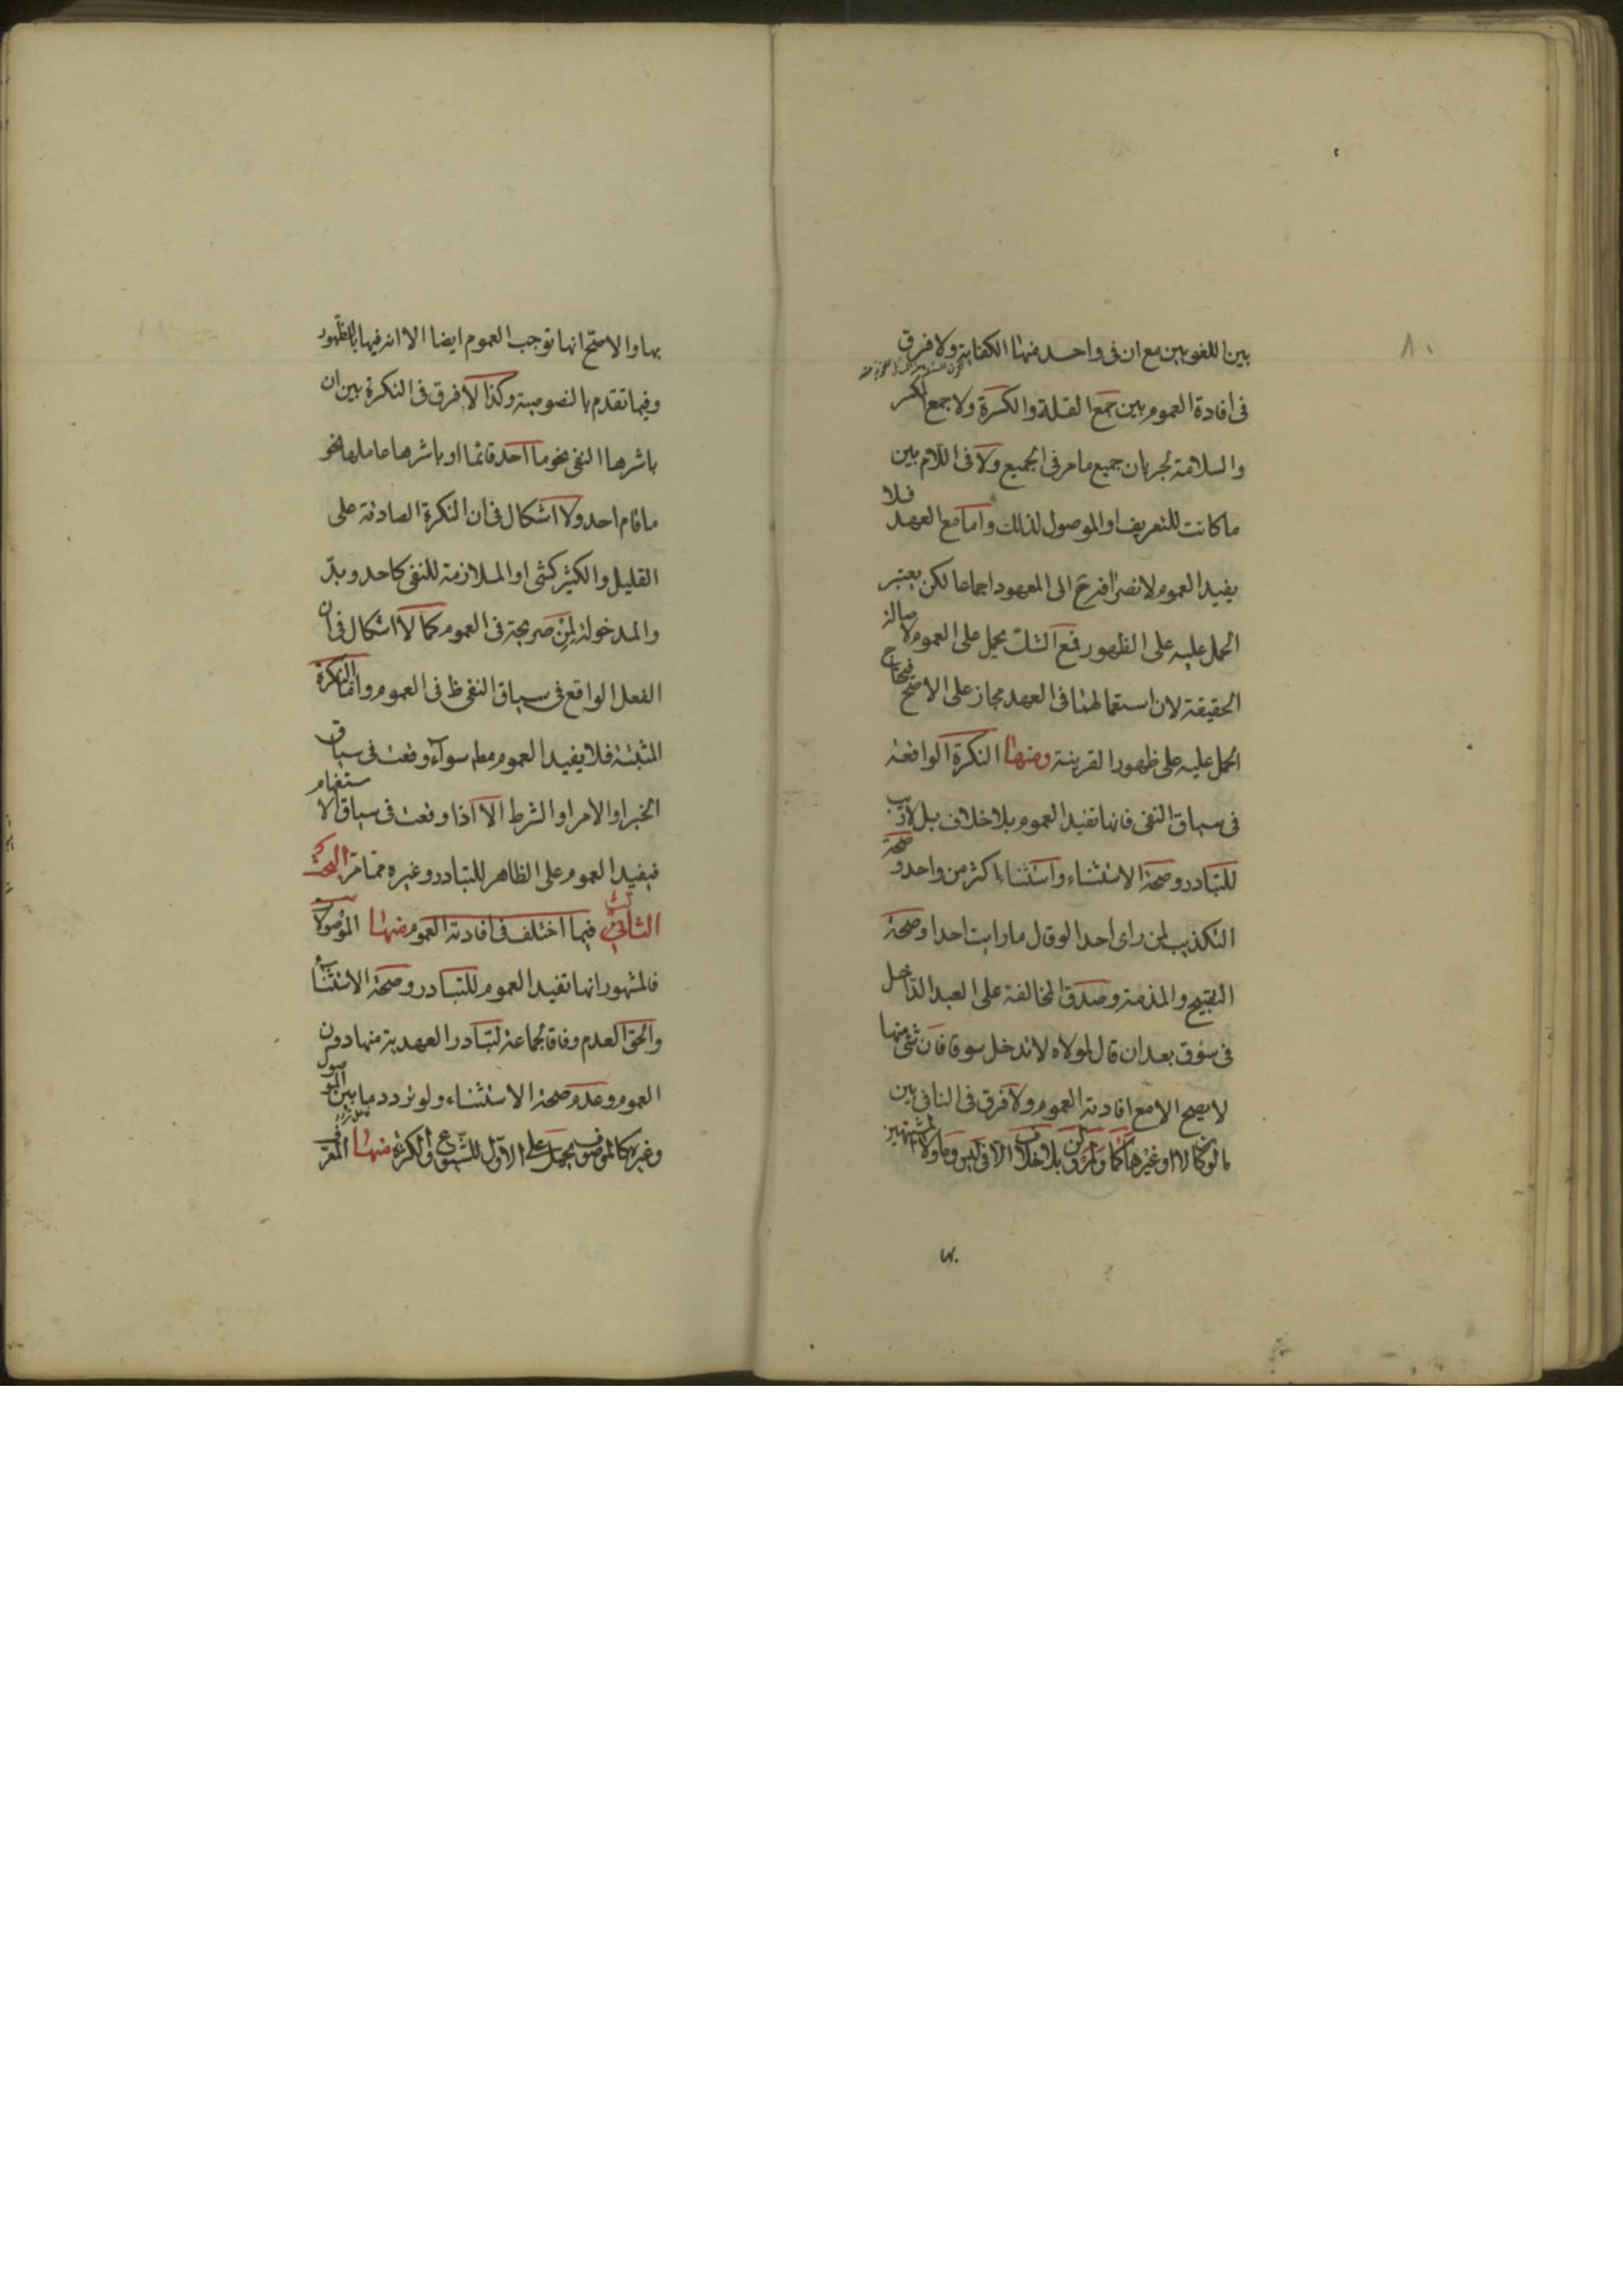 بين اللغويين مع ان فى واحد منها الكفاية ولا فرق
فى افادة العموم بين جمع القلة والكسرة ولا جمع المكسر
والسلامة لجريان جميع ما مر فى الجميع ولا فى اللام بين
ما كانت للتعريف او الموصول لذلك واما مع العهد فلا
يفيد العموم لانصرافه ح الى المعهود اجماعا لكن يعتبر
الحمل عليه على الظهور فمع الشك يحمل على العموم لاصالة
الحقيقة لان استعمالها فى العهد مجاز على الاصح فيحتاج
الحمل عليه على ظهور القرينة ومنها النكرة الواقعة
فى سياق النفى فانها تفيد العموم بلا خلاف بل لا ريب
للتبادر وصحة الاستثناء واستثناء اكثر من واحد وصحة
التكذيب لمن راى احدا لو قال ما رايت احدا وصحة
التقبيح والمذمة وصدق المخالفة على العبد الداخل
فى سوق بعد ان قال مولاه لا تدخل سوقا فان شئ منها
لا يصح الا مع افادته العموم ولا فرق فى النافى بين
ما لو كان لا او غيرها كما ولم ولن بلا خلاف الا فى ليس وما ولا المشبهتين
٨٠
بها والاصح انها توجب العموم ايضا الا انه فيها بالظهور
وفيما تقدم بالنصوصية وكذا لا فرق فى النكرة بين ان
باشرها النفى نحو ما احد قائما او باشرها عاملها نحو
ما قام احد ولا اشكال فى ان النكرة الصادقة على
القليل والكثير كشى او الملازمة للنفى كاحد وبدّ
والمدخولة لمِنْ صريحة فى العموم كما لا اشكال فى ان
الفعل الواقع فى سياق النفى ظ فى العموم واما النكرة
المثبتة فلا يفيد العموم مطم سواء وقعت فى سياق
الخبر او الامر او الشرط الا اذا وقعت فى سياق الاستفهام
فيفيد العموم على الظاهر للتبادر وغيره مما مر البحث
فيما اختلف فى افادته العموم منها الموصولات
فالمشهور انها تفيد العموم للتبادر وصحة الاستثناء
والحق العدم وفاقا لجماعة لتبادر العهدية منها دون
العموم وعدم صحة الاستثناء ولو تردد ما بين الموصول
وغيره كالموصوف يحمل على الاول للشيوع والكثرة منها المعرف